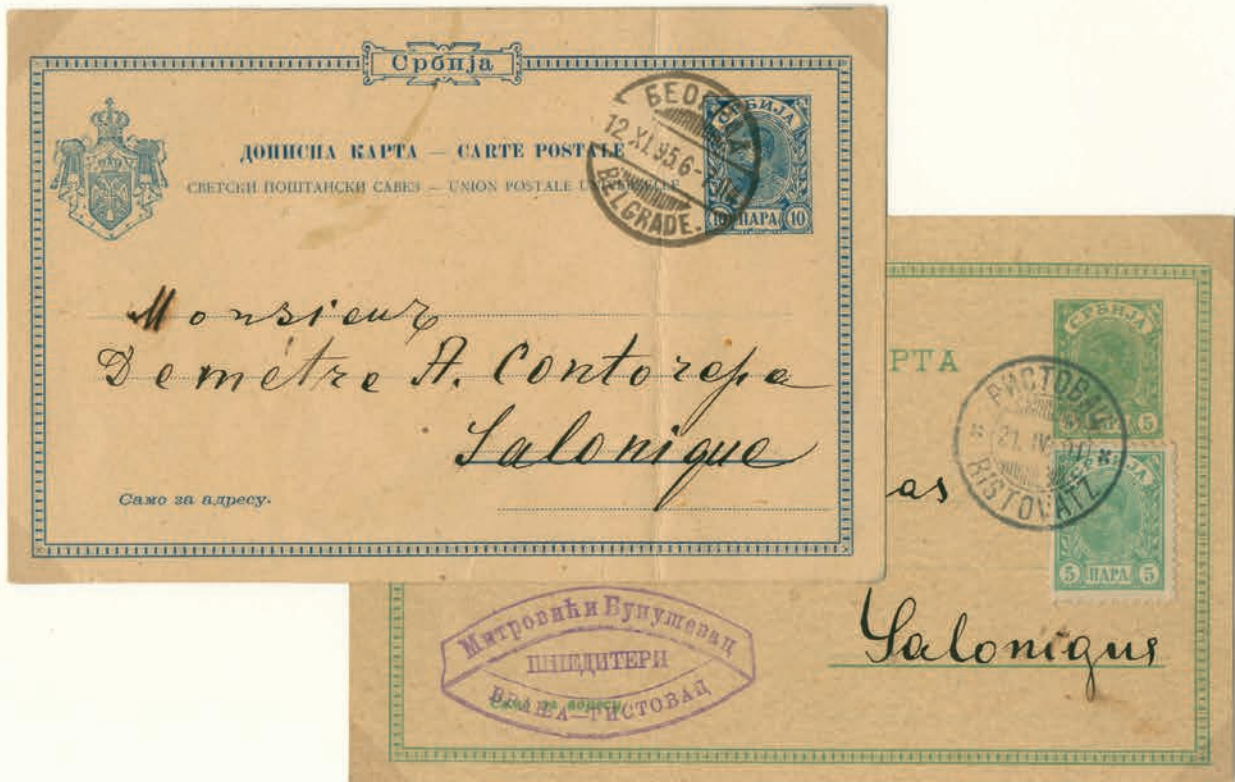 Србија
ДОПИСНА КАРТА — CARTE POSTALE
СВЕТСКИ ПОШТАНСКИ САВЕЗ — UNION POSTALE UNIVERSELLE
СРБИЈА
10 ПАРА 10
БЕОГРАД
12.XI.95.6-
BELGRADE.
Monsieur
Demètre A. Contorepa
Salonique
Само за адресу.
РТА
СРБИЈА
5
РИСТОВАЦ
21. IV
RISTOVATZ
СРБИЈА
5 ПАРА 5
as
Salonique
Митровић и Бунушевац
ШПЕДИТЕРИ
ВРАЊА—РИСТОВАЦ